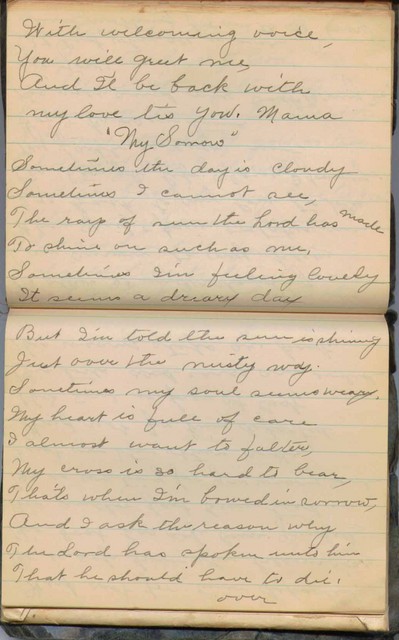 With welcoming voice,
You will greet me,
And I'll be back with
my love tis You. Mama
"My Sorrow"
Sometimes the day is cloudy
Sometimes I cannot see,
The rays of sun the Lord has made
To shine on such as me.
Sometimes I'm feeling lonely
It seems a dreary day
But I'm told the sun is shining
Just over the misty way.
Sometimes my soul seems weary.
My heart is full of care
I almost want to falter,
My cross is so hard to bear,
That's when I'm bowed in sorrow,
And I ask the reason why
The Lord has spoken unto him
That he should have to die.
over